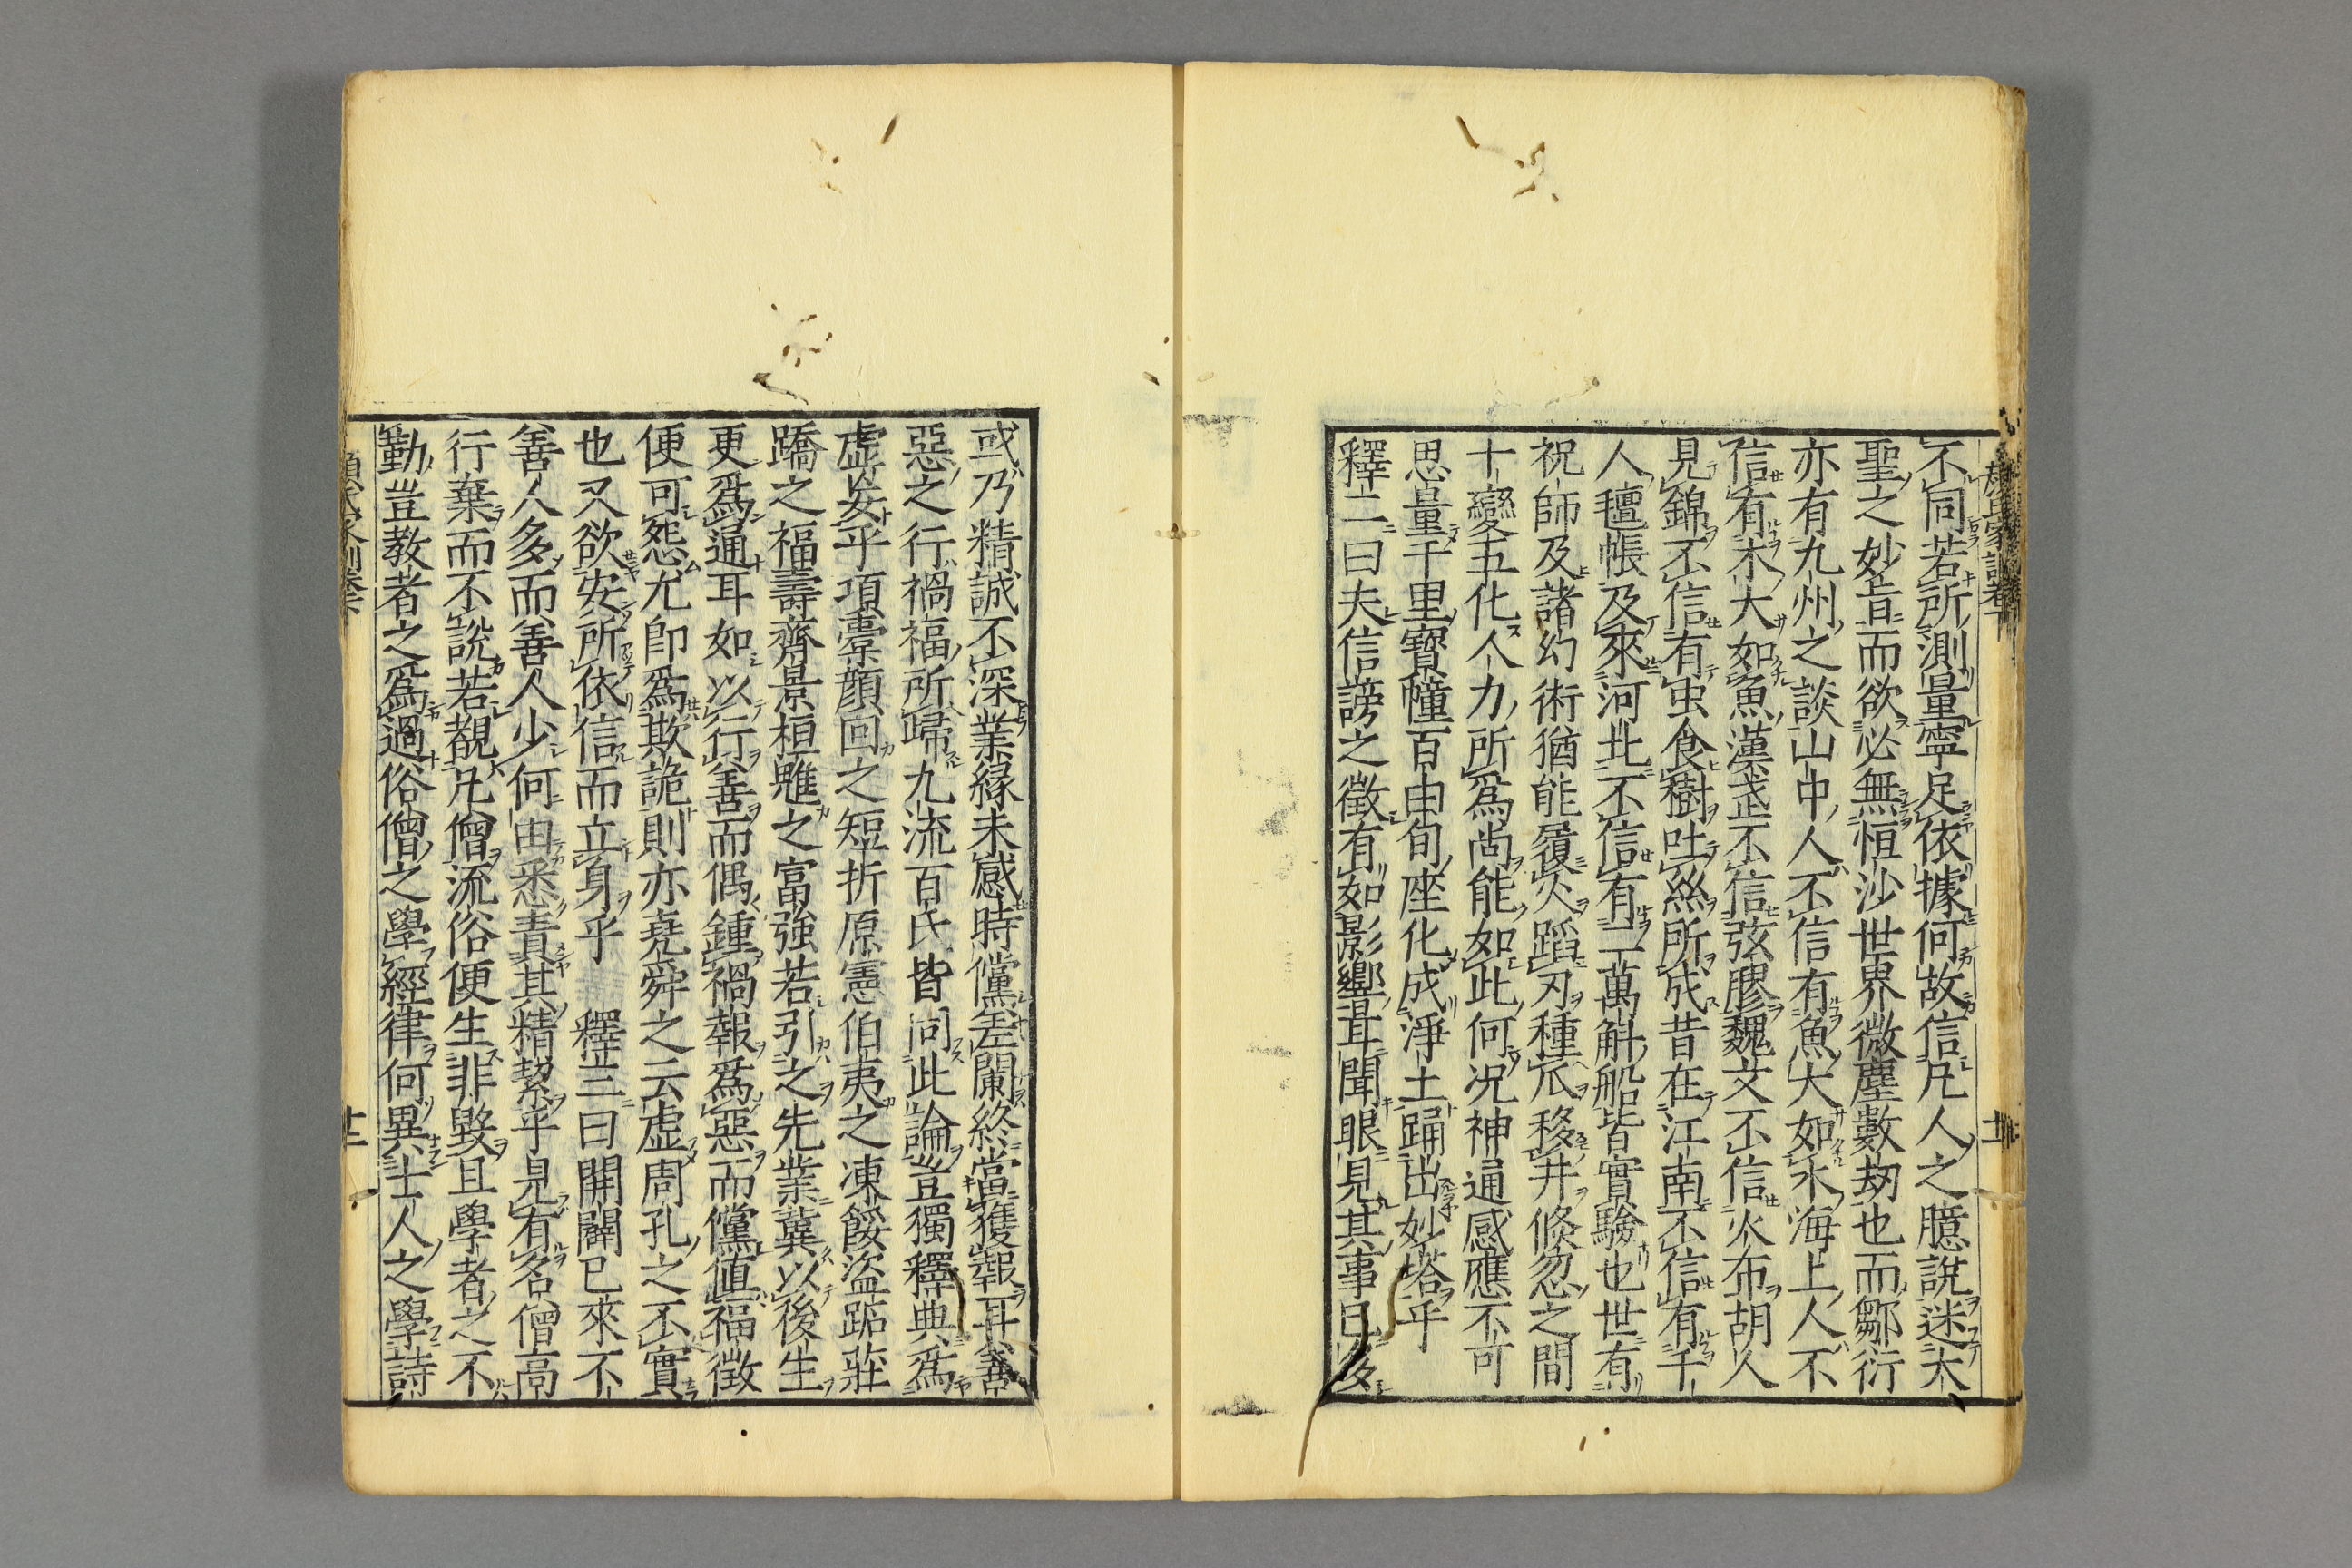 不同若所測量寧足依據何故信凡人之臆說迷大
聖之妙旨而欲必無恒沙世界微塵數劫也而鄒衍
亦有九州之談山中人不信有魚大如木海上人不
信有木大如魚漢武不信弦膠魏文不信火布胡人
見錦不信有虫食樹吐絲所成昔在江南不信有千
人氊帳及來河北不信有二萬斛船皆實驗也世有
祝師及諸幻術猶能履火蹈刃種瓜移井倏忽之間
十變五化人力所爲尚能如此何况神通感應不可
思量千里寶幢百由旬座化成淨土踊出妙塔乎
釋二曰夫信謗之徵有如影響耳聞眼見其事已多
或乃精誠不深業緣未感時儻差闌終當獲報耳善
惡之行禍福所歸九流百氏皆同此論豈獨釋典爲
虛妄乎項橐顏回之短折原憲伯夷之凍餒盜跖莊
蹻之福壽齊景桓魋之富強若引之先業冀以後生
更爲通耳如以行善而偶鍾禍報爲惡而儻値福徵
便可怨尤卽爲欺詭則亦堯舜之云虛周孔之不實
也又欲安所依信而立身乎　釋三曰開闢已來不
善人多而善人少何由悉責其精絜乎見有名僧高
行棄而不說若覩凡僧流俗便生非毀且學者之不
勤豈教者之爲過俗僧之學經律何異士人之學詩
顏氏家訓卷下
廿二